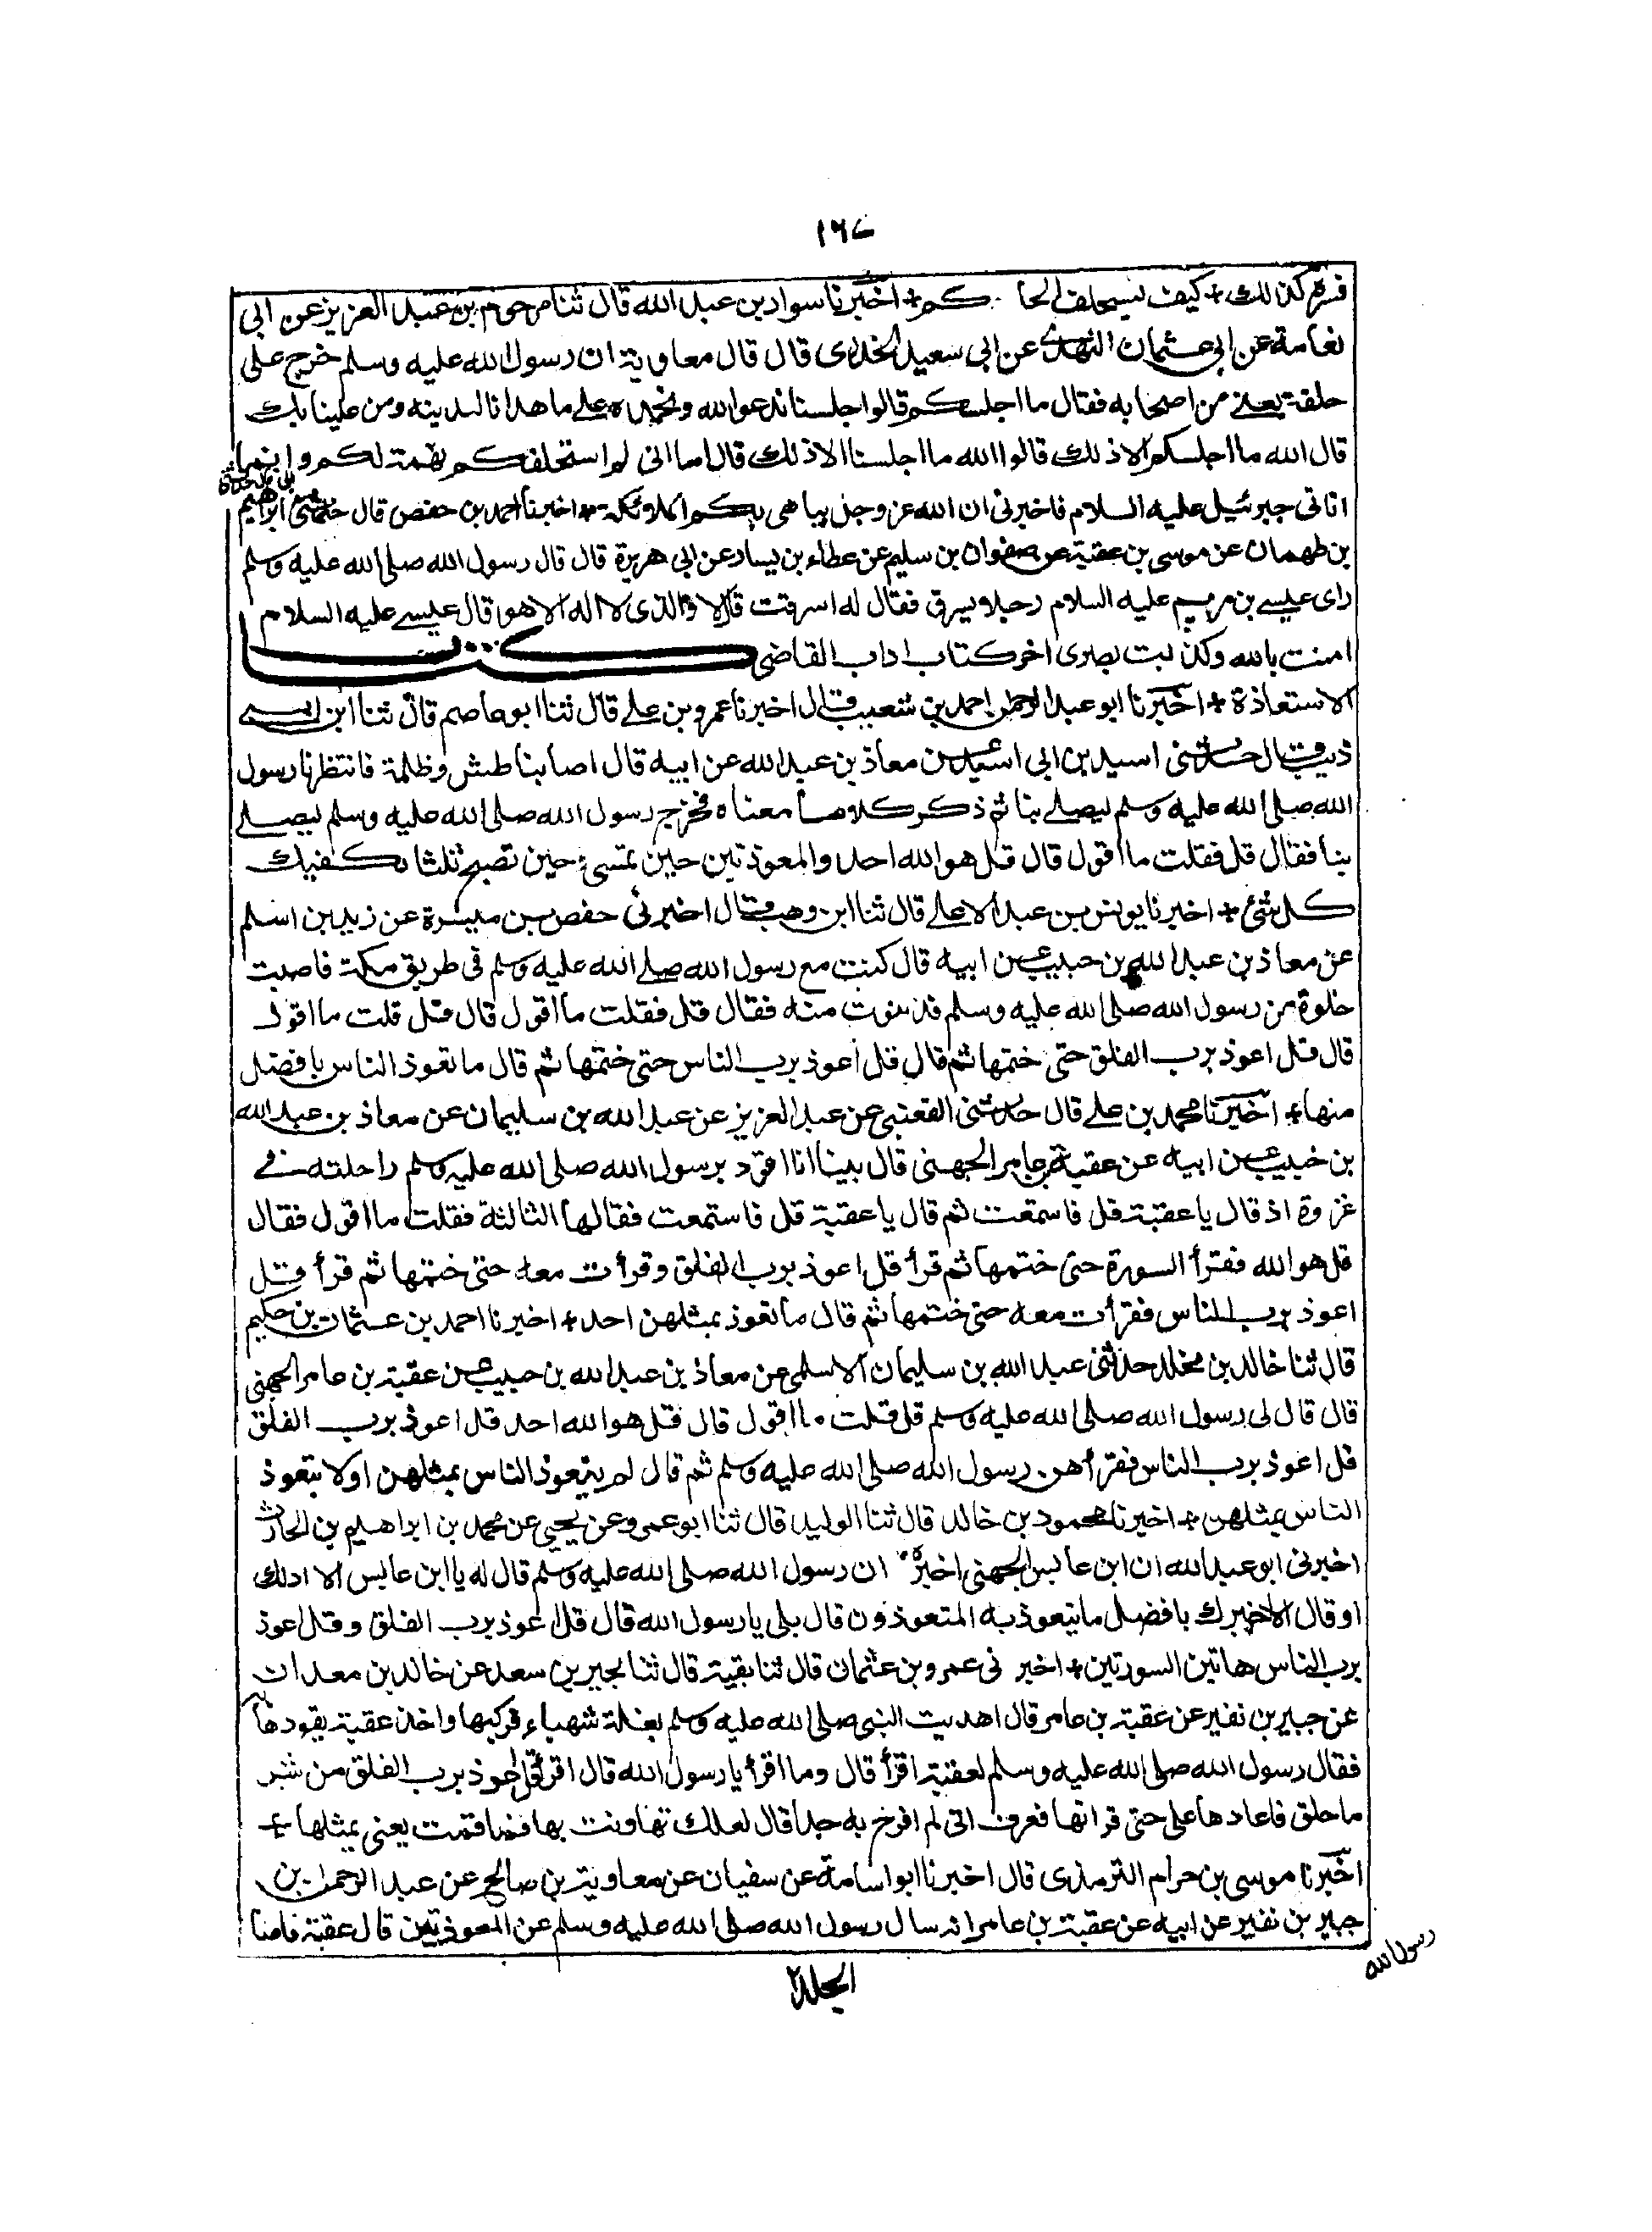 ١٦٧
فسره كذلك + كيف يستحلف الحاكم + اخبرنا سوار بن عبد الله قال ثنا مرحوم بن عبد العزيز عن ابى
نعامة عن ابى عثمان النهدى عن ابى سعيد الخدرى قال قال معاوية ان رسول الله عليه وسلم خرج على
حلقة يعنے من اصحابه فقال ما اجلسكم قالوا جلسنا ندعوا الله ونحمده علے ما هدانا لدينه ومن علينا بك
قال الله ما اجلسكم الا ذلك قالوا الله ما اجلسنا الا ذلك قال اما انى لم استحلفكم تهمة لكم وانما
اتانى جبرئيل عليه السلام فاخبرنى ان الله عز وجل يباهى بكم الملائكة + اخبرنا احمد بن حفص قال حدثنى ابراهيم
بن طهمان عن موسى بن عقبة عن صفوان بن سليم عن عطاء بن يسار عن ابى هريرة قال قال رسول الله صلى الله عليه وسلم
راى عيسے بن مريم عليه السلام رجلا يسرق فقال له اسرقت قال لا والذى لا اله الا هو قال عيسے عليه السلام
امنت بالله وكذبت بصرى اخر كتاب اداب القاضى كتاب
الاستعاذة + اخبرنا ابو عبد الرحمن احمد بن شعيب قال اخبرنا عمرو بن علے قال ثنا ابو عاصم قال ثنا ابن ابى
ذيب قال حدثنى اسيد بن ابى اسيد عن معاذ بن عبد الله عن ابيه قال اصابنا طش وظلمة فانتظرنا رسول
الله صلى الله عليه وسلم ليصلے بنا ثم ذكر كلاما معناه فخرج رسول الله صلى الله عليه وسلم ليصلے
بنا فقال قل فقلت ما اقول قال قل هو الله احد والمعوذتين حين تمسى وحين تصبح ثلثا يكفيك
كل شئ + اخبرنا يونس بن عبد الاعلے قال ثنا ابن وهب قال اخبرنى حفص بن ميسرة عن زيد بن اسلم
عن معاذ بن عبد الله بن حبيب عن ابيه قال كنت مع رسول الله صلے الله عليه وسلم فى طريق مكة فاصبت
خلوة من رسول الله صلى الله عليه وسلم فدنوت منه فقال قل فقلت ما اقول قال قل قلت ما اقول
قال قل اعوذ برب الفلق حتى ختمها ثم قال قل اعوذ برب الناس حتى ختمها ثم قال ما تعوذ الناس بافضل
منها + اخبرنا محمد بن علے قال حدثنى القعنبى عن عبد العزيز عن عبد الله بن سليمان عن معاذ بن عبد الله
بن خبيب عن ابيه عن عقبة بن عامر الجهنى قال بينا انا اقود برسول الله صلى الله عليه وسلم راحلته فے
غزوة اذ قال يا عقبة قل فاستمعت ثم قال يا عقبة قل فاستمعت فقالها الثالثة فقلت ما اقول فقال
قل هو الله فقرأ السورة حتى ختمها ثم قرأ قل اعوذ برب الفلق وقرأت معه حتى ختمها ثم قرأ قل
اعوذ برب الناس فقرأت معه حتى ختمها ثم قال ما تعوذ بمثلهن احد + اخبرنا احمد بن عثمان بن حكيم
قال ثنا خالد بن مخلد حدثنى عبد الله بن سليمان الاسلمى عن معاذ بن عبد الله بن حبيب عن عقبة بن عامر الجهنى
قال قال لى رسول الله صلى الله عليه وسلم قل قلت ما اقول قال قل هو الله احد قل اعوذ برب الفلق
قل اعوذ برب الناس فقرأهن رسول الله صلى الله عليه وسلم ثم قال لم يتعوذ الناس بمثلهن او لا يتعوذ
الناس بمثلهن + اخبرنا محمود بن خالد قال ثنا الوليد قال ثنا ابو عمرو عن يحيى عن محمد بن ابراهيم بن الحارث
اخبرنى ابو عبد الله ان ابن عابس الجهنى اخبره ان رسول الله صلى الله عليه وسلم قال له يا ابن عابس الا ادلك
او قال الا اخبرك بافضل ما يتعوذ به المتعوذون قال بلى يا رسول الله قال قل اعوذ برب الفلق وقل اعوذ
برب الناس هاتين السورتين + اخبرنى عمرو بن عثمان قال ثنا بقية قال ثنا بجير بن سعد عن خالد بن معدان
عن جبير بن نفير عن عقبة بن عامر قال اهديت النبى صلى الله عليه وسلم بغلة شهباء فركبها واخذ عقبة يقودها به
فقال رسول الله صلى الله عليه وسلم لعقبة اقرأ قال وما اقرأ يا رسول الله قال اقرأ قل اعوذ برب الفلق من شر
ما خلق فاعادها على حتى قراتها فعرف انى لم افرح به جدا قال لعلك تهاونت بها فما قمت يعنى بمثلها +
اخبرنا موسى بن حزام الترمذى قال اخبرنا ابو اسامة عن سفيان عن معاوية بن صالح عن عبد الرحمن بن
جبير بن نفير عن ابيه عن عقبة بن عامر انه سال رسول الله صلى الله عليه وسلم عن المعوذتين قال عقبة فامنا
رسول الله
الجلد٢